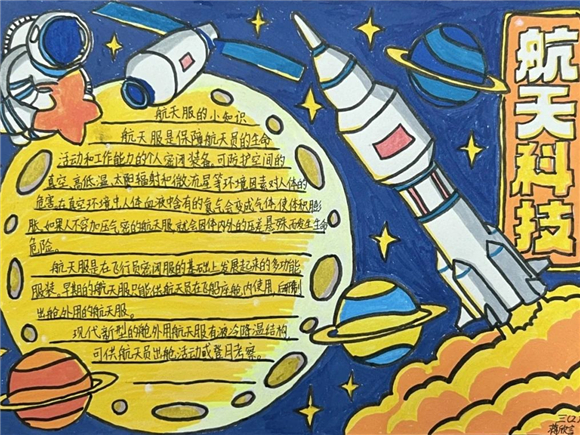 航天科技
航天服的小知识
航天服是保障航天员的生命
活动和工作能力的个人密闭装备,可防护空间的
真空、高低温、太阳辐射和微流星等环境因素对人体的
危害。在真空环境中人体血液中含有的氮气会变成气体,使体积膨
胀,如果人不穿加压气密的航天服,就会因体内外的压差悬殊而发生生命
危险。
航天服是在飞行员密闭服的基础上发展起来的多功能
服装。早期的航天服只能供航天员在飞船座舱内使用,后研制
出舱外用的航天服。
现代新型的舱外用航天服有液冷降温结构,
可供航天员出舱活动或登月考察。
三(2)